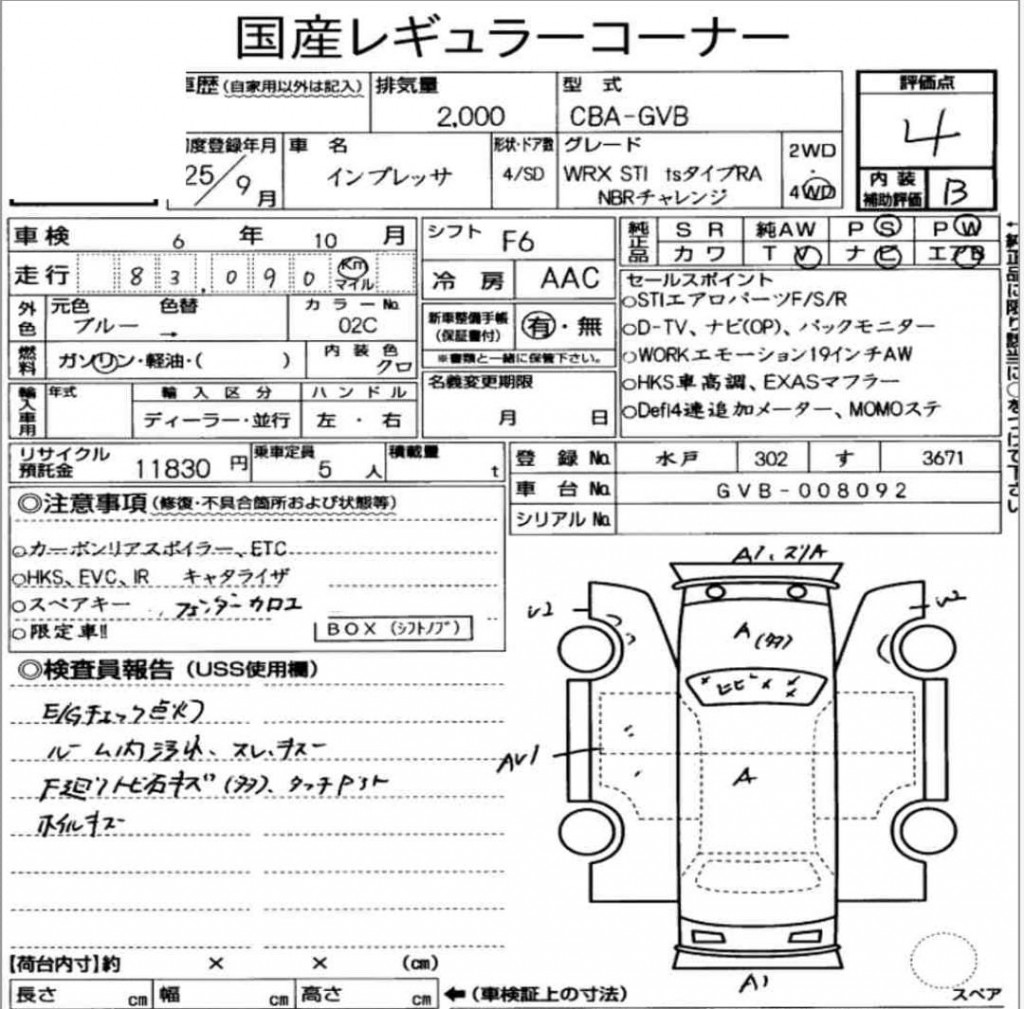 国産レギュラーコーナー
車歴(自家用以外は記入) 排気量 型式 評価点
2,000 CBA-GVB 4
初度登録年月 車名 形状・ドア数 グレード 2WD
25/9月 インプレッサ 4/SD WRX STI tsタイプRA 4WD 内装 B
NBRチャレンジ 補助評価
車検 6年 10月 シフト F6 純正品 SR 純AW PS PW
カワ TV ナビ エアB
走行 83,090 Km マイル 冷房 AAC セールスポイント
外色 元色 色替 カラーNo. ○STIエアロパーツF/S/R
ブルー → 02C 新車整備手帳 (保証書付) 有・無 ○D-TV、ナビ(OP)、バックモニター
※書類と一緒に保管下さい。 ○WORKエモーション19インチAW
燃料 ガソリン・軽油・( ) 内装色 クロ 名義変更期限 ○HKS車高調、EXASマフラー
輸入車用 年式 輸入区分 ハンドル 月 日 ○Defi4連追加メーター、MOMOステ
ディーラー・並行 左・右
←純正品に限り該当に○をつけて下さい
リサイクル預託金 11830円 乗車定員 5人 積載量 t 登録No. 水戸 302 す 3671
車台No. GVB-008092
シリアルNo.
◎注意事項(修復・不具合箇所および状態等)
○カーボンリアスポイラー、ETC
○HKS、EVC、IR キャタライザ
○スペアキー フェンダーカロエ
○限定車!! BOX(シフトノブ)
◎検査員報告(USS使用欄)
E/Gチェック点火
ルーム内汚れ、スレ、キズー
F廻りトビ石キズ(多)、タッチPント
ホイルキズー
A1、ズリA
U2 U2
A(多)
ヒビ
AU1
A
A1
【荷台内寸】約 × × (cm)
長さ cm 幅 cm 高さ cm ←(車検証上の寸法) スペア